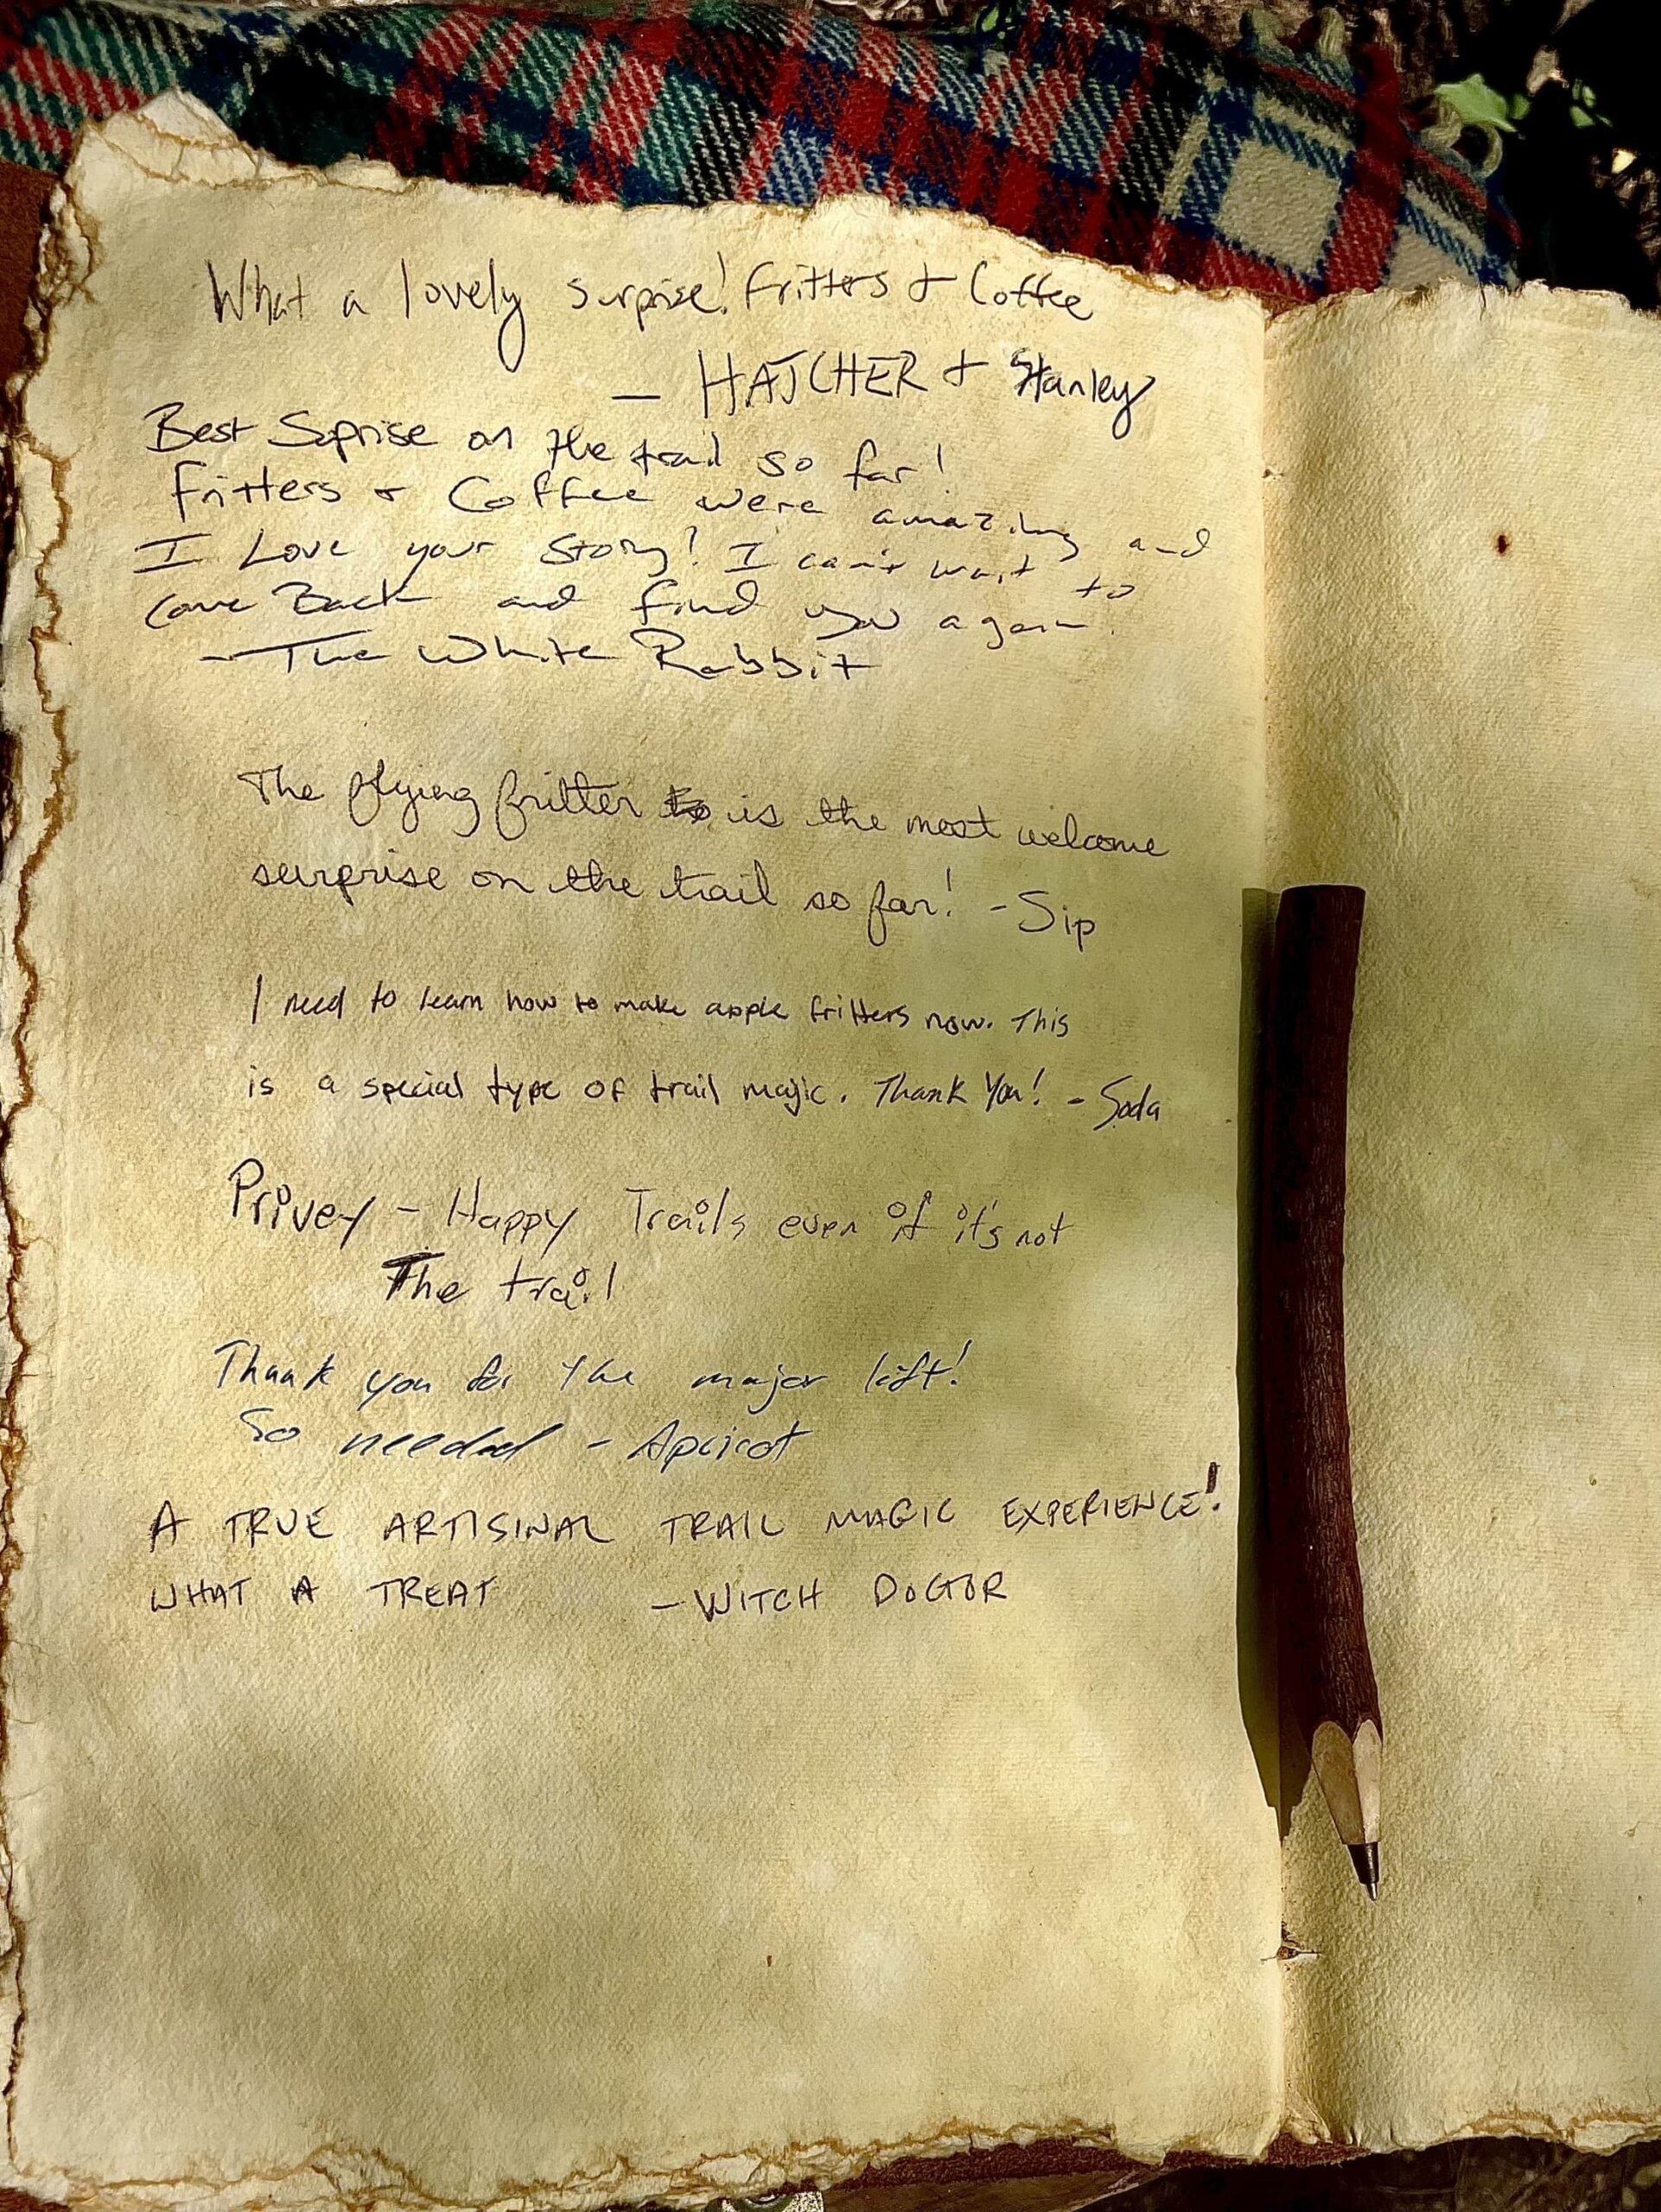 What a lovely surprise! Fritters & Coffee
— HATCHER & Stanley
Best Suprise on the trail so far!
Fritters & Coffee were amazing and
I Love your Story! I can't wait to
come Back and find you again.
- The White Rabbit
The flying fritter to is the most welcome
surprise on the trail so far! - Sip
I need to learn how to make apple fritters now. This
is a special type of trail magic. Thank You! - Soda
Privey - Happy Trails even if it's not
The trail
Thank you for the major lift!
So needed - Apricot
A TRUE ARTISINAL TRAIL MAGIC EXPERIENCE!
WHAT A TREAT - WITCH DOCTOR